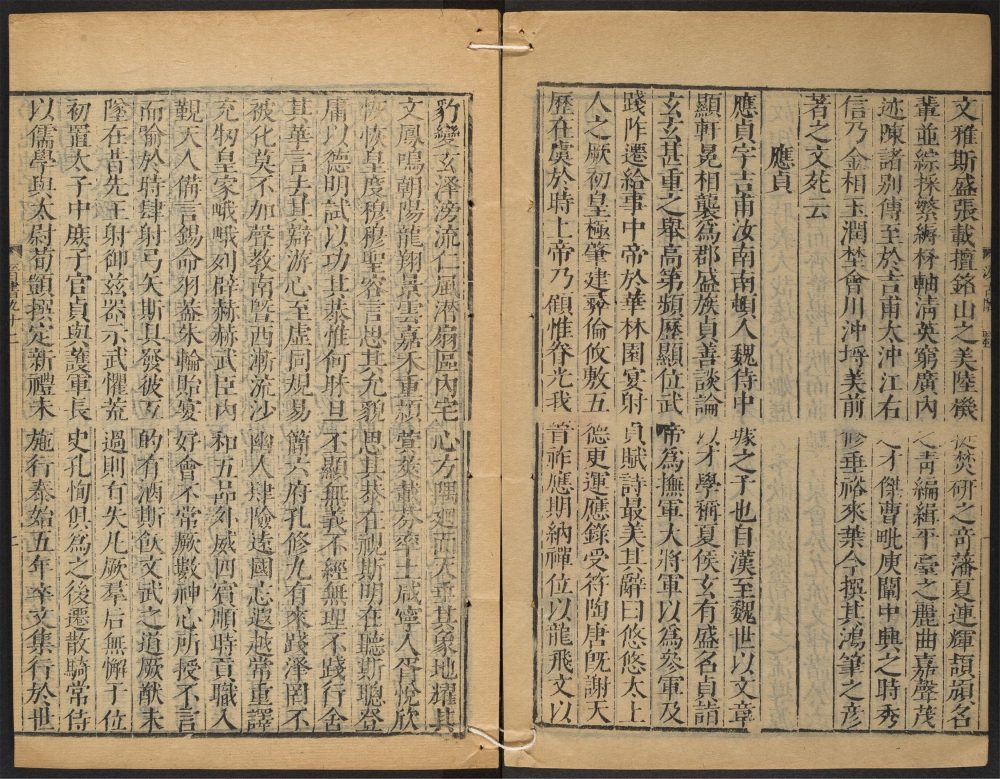 文雅斯盛張載擅銘山之美陸機挺焚研之奇藩夏連輝頡頏名
輩並綜採繁縟杼軸清英窮廣內之青編緝平臺之麗曲嘉聲茂
迹陳諸別傳至於吉甫太沖江右之才傑曹毗庾闡中興之時秀
信乃金相玉潤埜會川沖埒美前修垂裕來葉今撰其鴻筆之彥
著之文苑云
應貞
應貞字吉甫汝南南頓人魏侍中璩之子也自漢至魏世以文章
顯軒冕相襲為郡盛族貞善談論以才學稱夏侯玄有盛名貞詣
玄玄甚重之舉高第頻歷顯位武帝為撫軍大將軍以為參軍及
踐阼遷給事中帝於華林園宴射貞賦詩最美其辭曰悠悠太上
人之厥初皇極肇建彝倫攸敷五德更運應錄受符陶唐既謝天
歷在虞於時上帝乃顧惟眷光我晉祚應期納禪位以龍飛文以
豹變玄澤滂流仁風潛扇區內宅心方隅廻面天垂其象地耀其
文鳳鳴朝陽龍翔景雲嘉禾重穎蓂莢載芬率土咸寧人胥悅欣
恢恢皇度穆穆聖容言思其允貌思其恭在視斯明在聽斯聰登
庸以德明試以功其恭惟何昧旦丕顯無義不經無理不踐行舍
其華言去其辯游心至虛同規易簡六府孔修九有來踐澤罔不
被化莫不加聲教南暨西漸流沙幽人肆險遠國忘遐越常重譯
充牣皇家峨峨列辟赫赫武臣內和五品外威四賓順時貢職入
覲天人備言錫命羽蓋朱輪貽宴好會不常厥數神心所授不言
而喻於時肆射弓矢斯具發彼互的有酒斯飲文武之道厥猷未
墜在昔先王射御兹器示武懼荒過則有失凡厥羣后無懈于位
初置太子中庶子官貞與護軍長史孔恂俱為之後遷散騎常侍
以儒學與太尉荀顗撰定新禮未施行泰始五年卒文集行於世